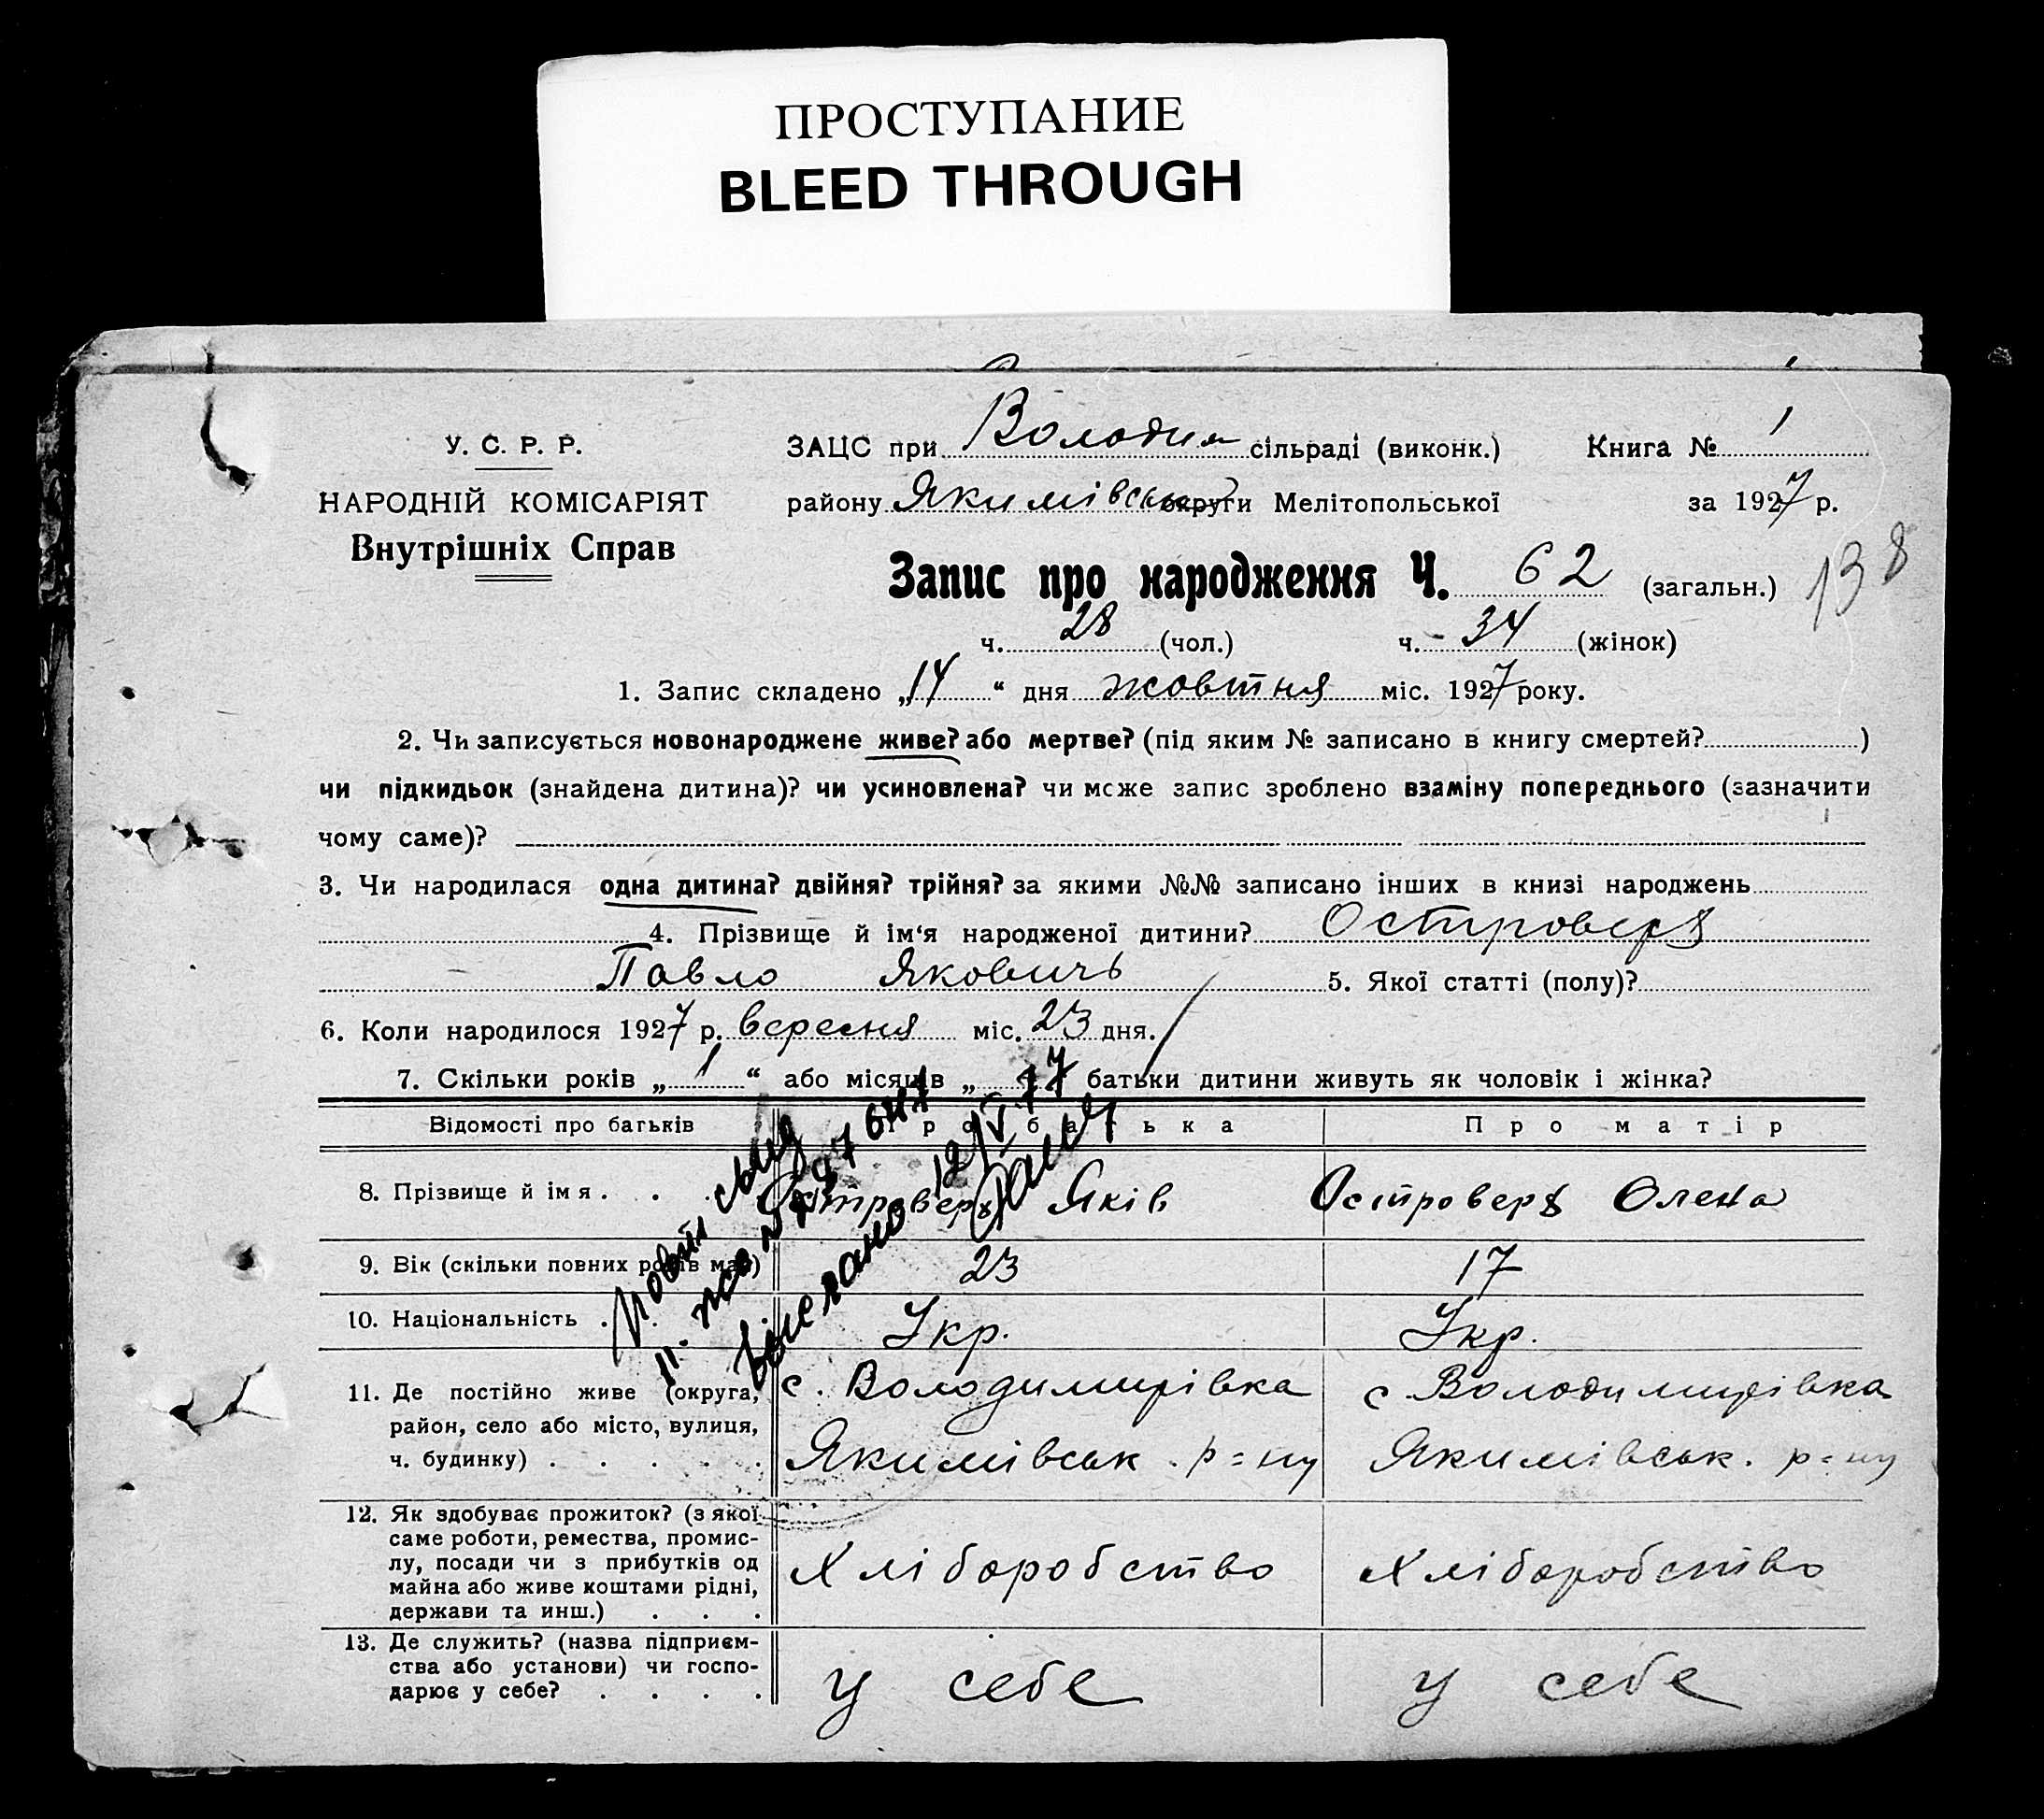 ПРОСТУПАНИЕ
BLEED THROUGH
У. С. Р. Р.
НАРОДНІЙ КОМІСАРІЯТ
Внутрішніх Справ
ЗАЦС при Володим сільраді (виконк.) Книга № 1
району Якимівськ округи Мелітопольської за 1927 р.
138
Запис про народження Ч. 62 (загальн.)
ч. 28 (чол.) ч. 34 (жінок)
1. Запис складено „14“ дня жовтня міс. 1927 року.
2. Чи записується новонароджене живе? або мертве? (під яким № записано в книгу смертей? )
чи підкидьок (знайдена дитина)? чи усиновлена? чи може запис зроблено взаміну попереднього (зазначити
чому саме)?
3. Чи народилася одна дитина? двійня? трійня? за якими №№ записано інших в книзі народжень
4. Прізвище й ім‘я народженої дитини? Островерх
Павло Яковичь 5. Якої статті (полу)?
6. Коли народилося 1927 р. вересня міс. 23 дня.
7. Скільки років „1“ або місяців „ батьки дитини живуть як чоловік і жінка?
Відомості про батьків Про батька Про матір
8. Прізвище й імя . . . Островерх Яків Островерх Олена
9. Вік (скільки повних років має) 23 17
10. Національність . . Укр. Укр.
11. Де постійно живе (округа, район, село або місто, вулиця, ч. будинку) . . . . .
с. Володимирівка с. Володимирівка
Якимівськ. р=ну Якимівськ. р=ну
12. Як здобуває прожиток? (з якої
саме роботи, ремества, промис-
лу, посади чи з прибутків од
майна або живе коштами рідні,
держави та инш.) . . .
Хліборобство Хліборобство
13. Де служить? (назва підприєм-
ства або установи) чи госпо-
дарює у себе? . . . .
у себе у себе